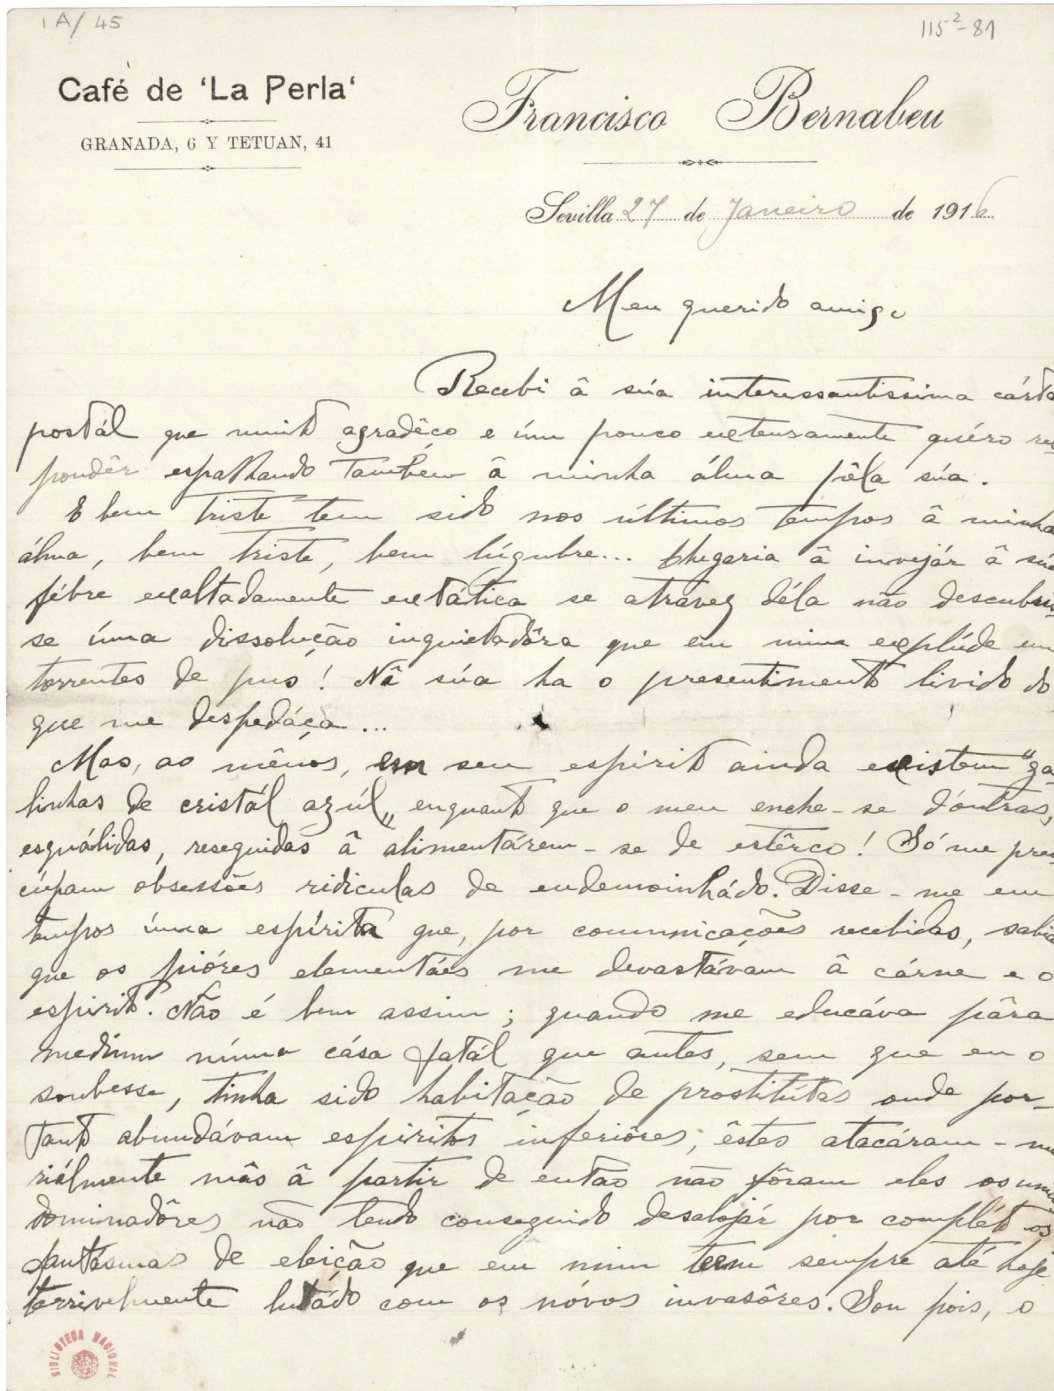 1 A/45
115²-81
Café de 'La Perla'
GRANADA, 6 Y TETUAN, 41
Francisco Bernabeu
Sevilla 27 de Janeiro de 1916
Meu querido amigo
Recebi â súa interessantissima cárta
postál que muito agradêço e úm pouco extensamente quéro res-
pondêr espalhando tambêm â minha álma pêla súa.
E bem triste tem sido nos últimos tempos â minha
álma, bem triste, bem lúgubre... Chegaria â invejár â súa
fébre exaltadamente extática se atravez déla não descubris-
se úma dissolução inquietadôra que em mim explúde em
torrentes de pus! Nâ súa ha o presentimento livido do
que me despedáça...
Mas, ao mênos, em seu espirito ainda existem "ga-
linhas de cristál azúl„ enquanto que o meu enche-se d'outras,
esquálidas, reseguidas â alimentárem-se de estêrco! Só me preo-
cúpam obsessões ridiculas de endemoinhádo. Disse-me em
tempos úma espírita que, por comunicações recebidas, sabia
que os pióres elementáes me devastávam â cárne e o
espirito. Não é bem assim; quando me educáva pâra
medium núma cása fatál que antes, sem que eu o
soubesse, tinha sido habitação de prostitútas onde por-
tanto abundávam espiritos inferiôres; êstes atacáram-me
riálmente mâs â partir de então não fôram eles os únicos
dominadôres não tendo conseguido desalojár por compléto os
fantásmas de eleição que em mim teem sempre até hoje
terrivelmente lutádo com os nóvos invasôres. Sou pois, o
BIBLIOTECA NACIONAL